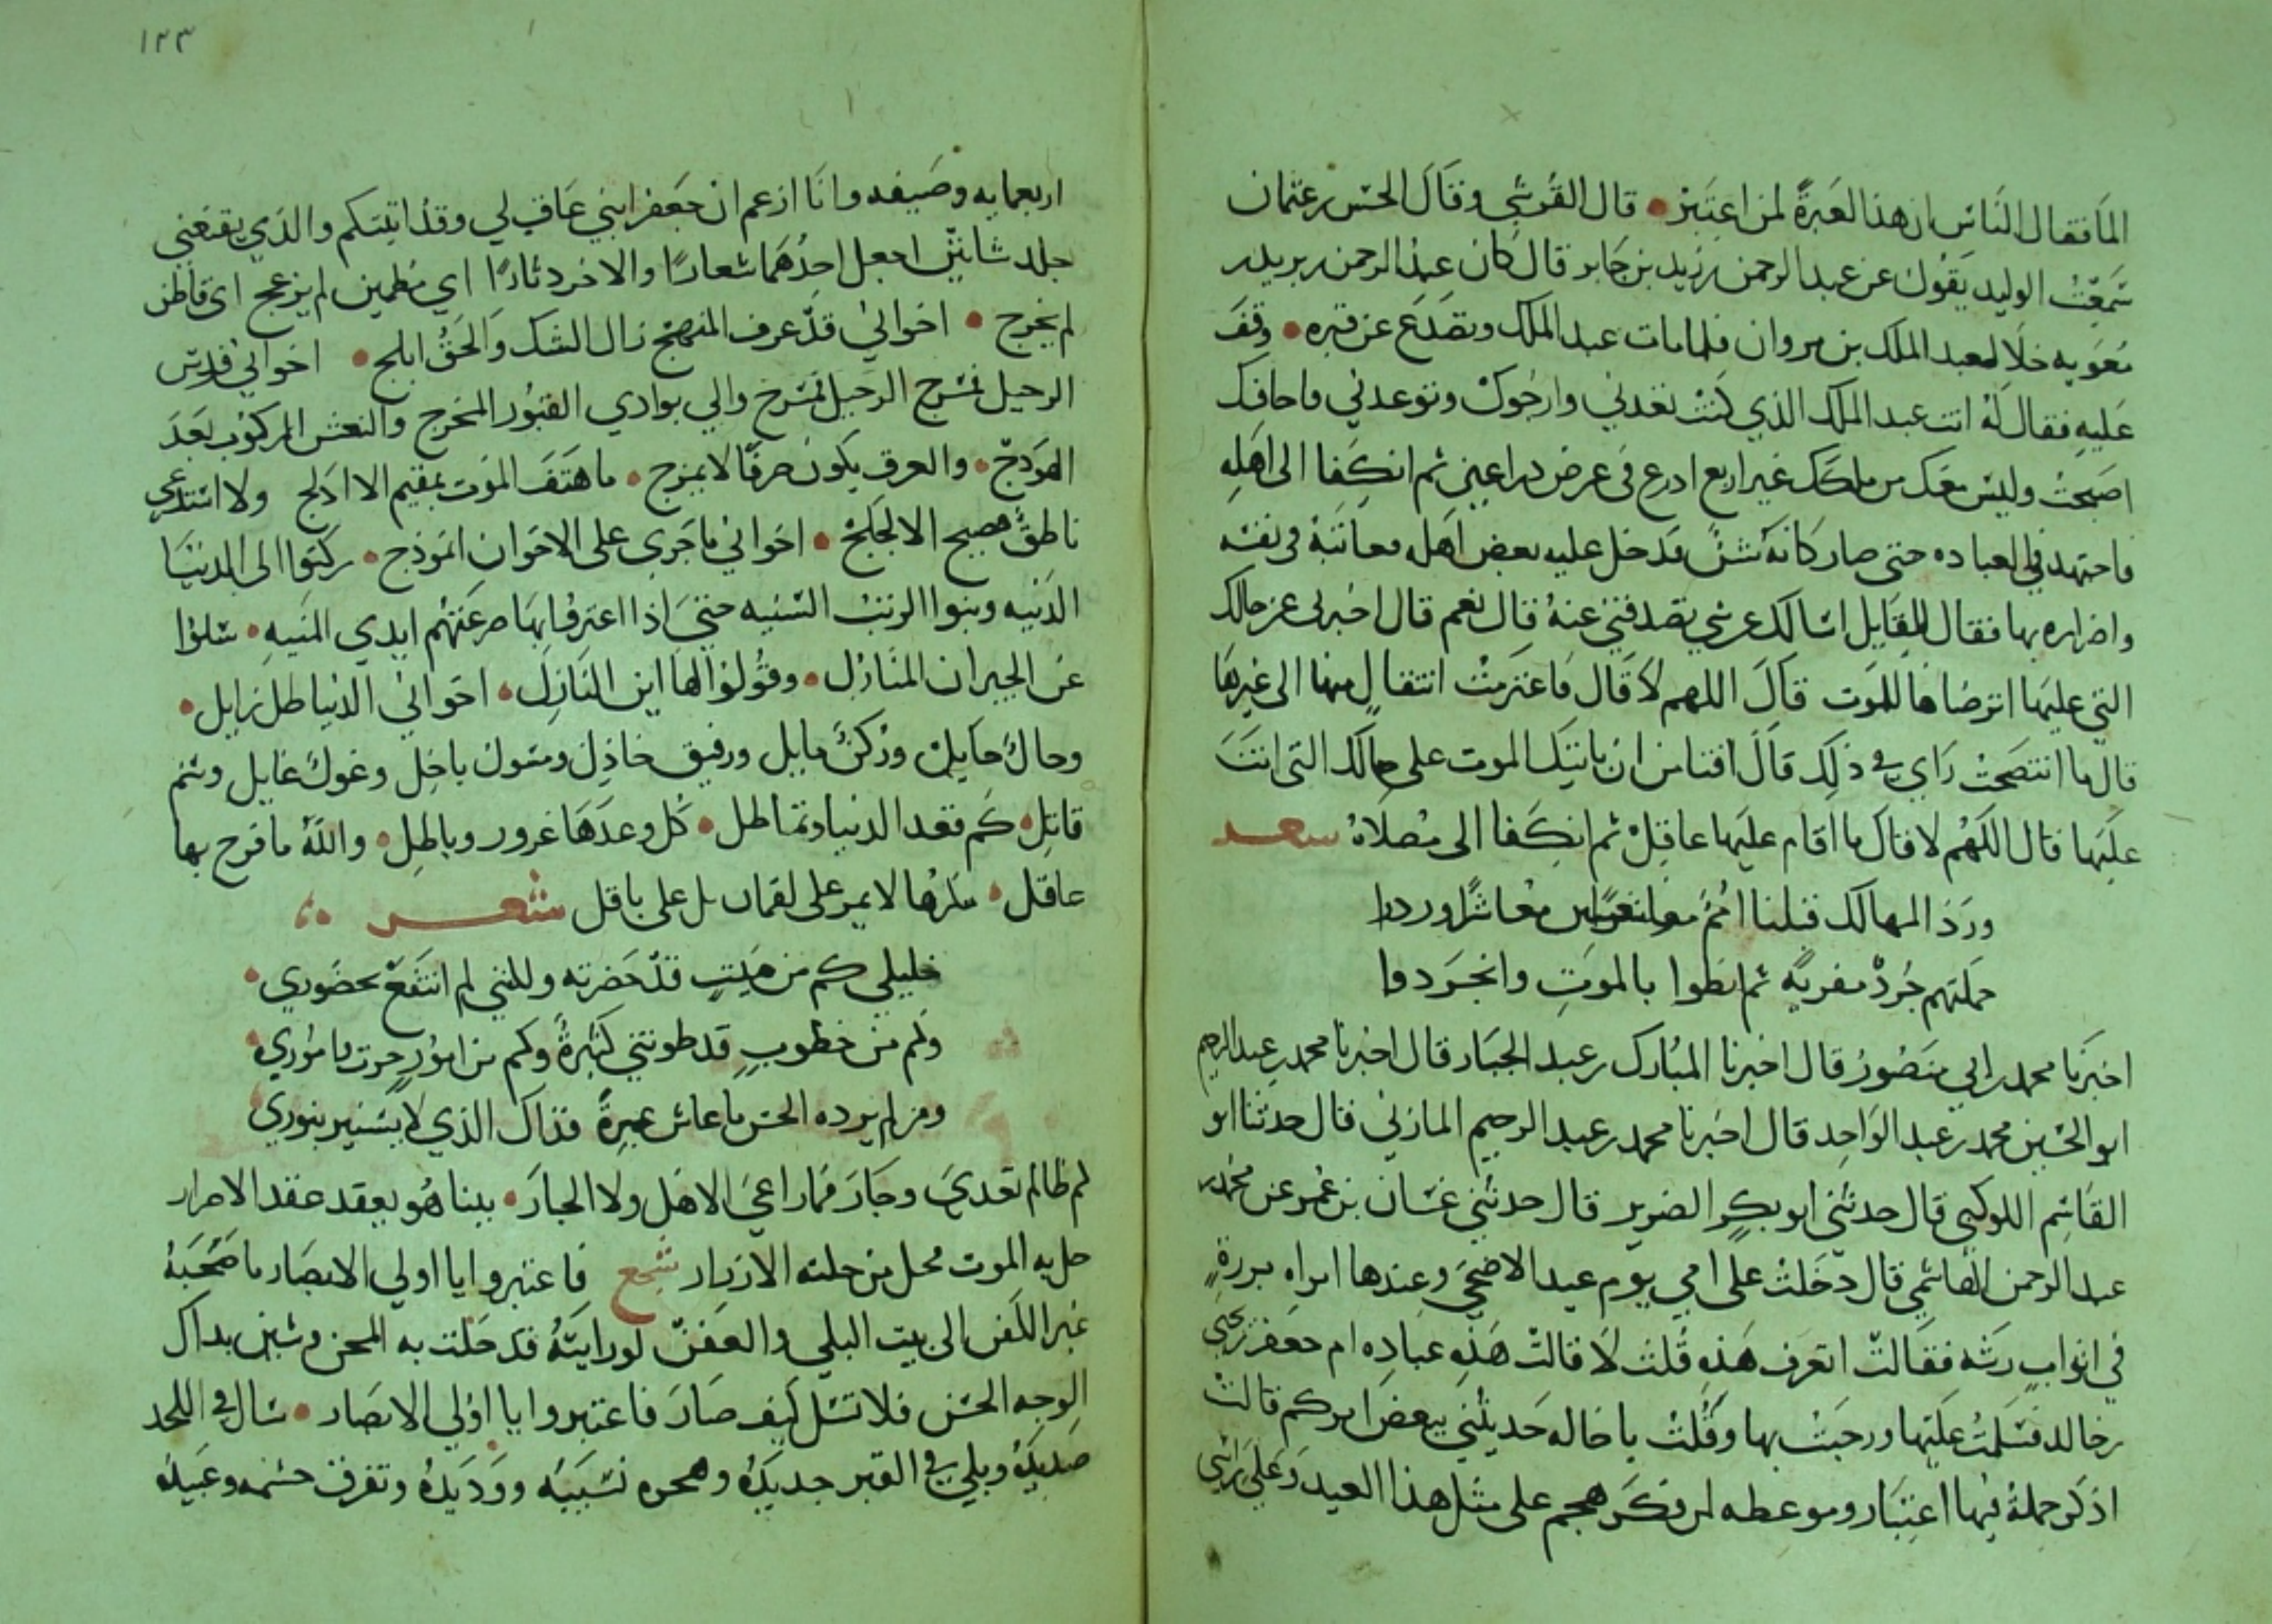 الما فقال الناس ان هذا لعبرة لمن اعتبر • قال القرشي وقال الحسن بن عثمان
سمعت الوليد يقول عن عبد الرحمن بن زيد بن جابر قال كان عبد الرحمن بن يزيد بن
معويه خلا لعبد الملك بن مروان فلما مات عبد الملك وتصدع عن قبره • وقف
عليه فقال له انت عبد الملك الذي كنت تعدني وارجوك وتوعدني فاخافك
اصبحت وليس معك من ملكك غير اربع ادرع في عرض ذراعين ثم انكفا الى اهله
فاجتهد في العباده حتى صار كانه شن فدخل عليه بعض اهله فعاتبه في نفسه
واضراره بها فقال للقايل اسالك عن شي تصدقني عنه قال نعم قال اخبرني عن حالك
التي عليها اترضاها للموت قال اللهم لا قال فاعتزمت انتقال منها الى غيرها
قال ما انتصحت راي في ذلك قال افتامن ان ياتيك الموت على حالك التي انت
عليها قال اللهم لا قال ما اقام عليها عاقل ثم انكفا الى مصلاه شعر
ورد المهالك قبلنا امم معاشرا وردا
حملتهم جرد مقربة ثم انطوا بالموت وانجردوا
اخبرنا محمد بن ابي منصور قال اخبرنا المبارك بن عبد الجبار قال اخبرنا محمد بن عبد الرحيم
ابو الحسين محمد بن عبد الواحد قال اخبرنا محمد بن عبد الرحيم المازني قال حدثنا ابو
القاسم اللوكبي قال حدثني ابو بكر الضرير قال حدثني غسان بن عمر عن محمد بن
عبد الرحمن الهاشمي قال دخلت على امي يوم عيد الاضحى وعندها امراه برزة
في اثواب رثه فقالت اتعرف هذه قلت لا قالت هذه عباده ام جعفر بن يحيى
بن خالد فسلمت عليها ورحبت بها وقلت يا خاله حديثني ببعض امركم قالت
اذكر جملة فيها اعتبار وموعظه لمن فكر هجم على مثل هذا العيد وعلى راسي
١٢٣
اربعمايه وصيفه وانا ازعم ان جعفر ابني عاق لي وقد اتيتكم والذي يقنعني
جلد شاتين اجعل احدهما شعارا والاخر دثارا اي مطمين لم يزعج اي قاطن
لم يخرج • اخواني قد عرف المنهج زال الشك والحق ابلج • اخواني فرس
الرحيل تسرج الرحيل تسرج والي بوادي القبور المخرج والنعش المركوب بعد
الهودج • والعرق يكون صرفا لا يمزج • ما هتف الموت بمقيم الا ادلج ولا استدعي
ناطق فصيح الا لجلج • اخواني ما جرى على الاخوان انموذج • ركنوا الى الدنيا
الدنيه وبنوا الرتب السنيه حتى اذا اعترفوا بها صرعتهم ايدي المنيه • سلوا
عن الجيران المنازل • وقولوا لها اين النازل • اخواني الدنيا ظل زايل •
وحال حايل وركن مايل ورفيق خاذل ومسول باخل وغول غايل وسم
قاتل • كم تعد الدنيا وتماطل • كل وعدها غرور وباطل • والله ما فرح بها
عاقل • مكرها لا يمر على لقمان بل على باقل شعر
خليلي كم من ميت قد حضرته وللني لم انتفع بحضوري •
وكم من خطوب قد طوتني كثيرة وكم من امور جرت بامور •
ومن لم يزده السن ما عاش عبرة فذاك الذي لا يستنير بنوري
لم ظالم تعدي وجار فما راعي الاهل ولا الجار • بينا هو يعقد عقد الاصرار
حل به الموت فحل من حلته الازرار سجع فاعتبروا يا اولي الابصار ما صحبه
غير الكفن الى بيت البلى والعفن لو رايته قد حلت به المحن وشين بذاك
الوجه الحسن فلا تسل كيف صار فاعتبروا يا اولي الابصار • سال في اللحد
صديده وبلي في القبر جديده وهجره نسيبه ووديده وتفرق حشمه وعبيده